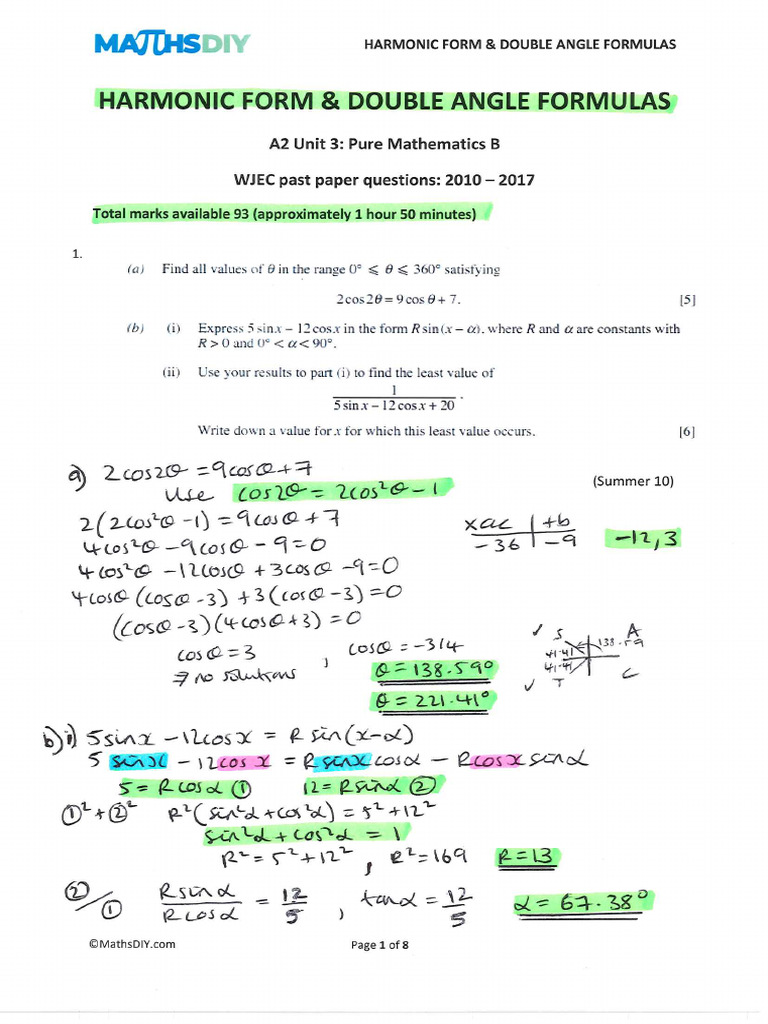 MATHSDIY
HARMONIC FORM & DOUBLE ANGLE FORMULAS
HARMONIC FORM & DOUBLE ANGLE FORMULAS
A2 Unit 3: Pure Mathematics B
WJEC past paper questions: 2010 – 2017
Total marks available 93 (approximately 1 hour 50 minutes)
1.
(a) Find all values of θ in the range 0° ⩽ θ ⩽ 360° satisfying
2 cos 2θ = 9 cos θ + 7. [5]
(b) (i) Express 5 sin x – 12 cos x in the form R sin (x – α), where R and α are constants with
R > 0 and 0° < α < 90°.
(ii) Use your results to part (i) to find the least value of
1
5 sin x – 12 cos x + 20 .
Write down a value for x for which this least value occurs. [6]
(Summer 10)
a) 2cos2θ = 9cosθ+7
Use cos2θ = 2cos²θ - 1
2(2cos²θ -1) = 9cosθ + 7
4cos²θ - 9cosθ - 9 = 0
4cos²θ - 12cosθ + 3cosθ - 9 = 0
4cosθ (cosθ - 3) + 3(cosθ - 3) = 0
(cosθ - 3)(4cosθ + 3) = 0
cosθ = 3 , cosθ = -3/4
⇒ no solutions θ = 138.59°
θ = 221.41°
xac | +b
-36 | -9 -12, 3
✓ S A
138.59
41.41
41.41
✓ T C
b) i) 5sinx - 12cosx = R sin(x-α)
5 sinx - 12cosx = R sinx cosα - R cosx sinα
5 = R cosα ① 12 = R sinα ②
①² + ②² R²(sin²α + cos²α) = 5² + 12²
sin²α + cos²α = 1
R² = 5² + 12² , R² = 169 R = 13
②/① R sinα / R cosα = 12/5 , tanα = 12/5 α = 67.38°
©MathsDIY.com
Page 1 of 8